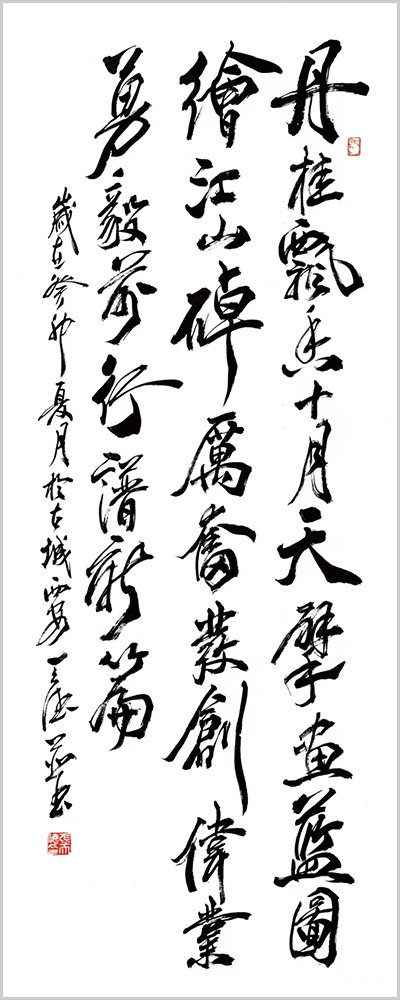 丹桂飄香十月天擘畫藍圖
繪江山踔厲奮發創偉業
勇毅前行譜新篇
歲在癸卯夏月於古城西安